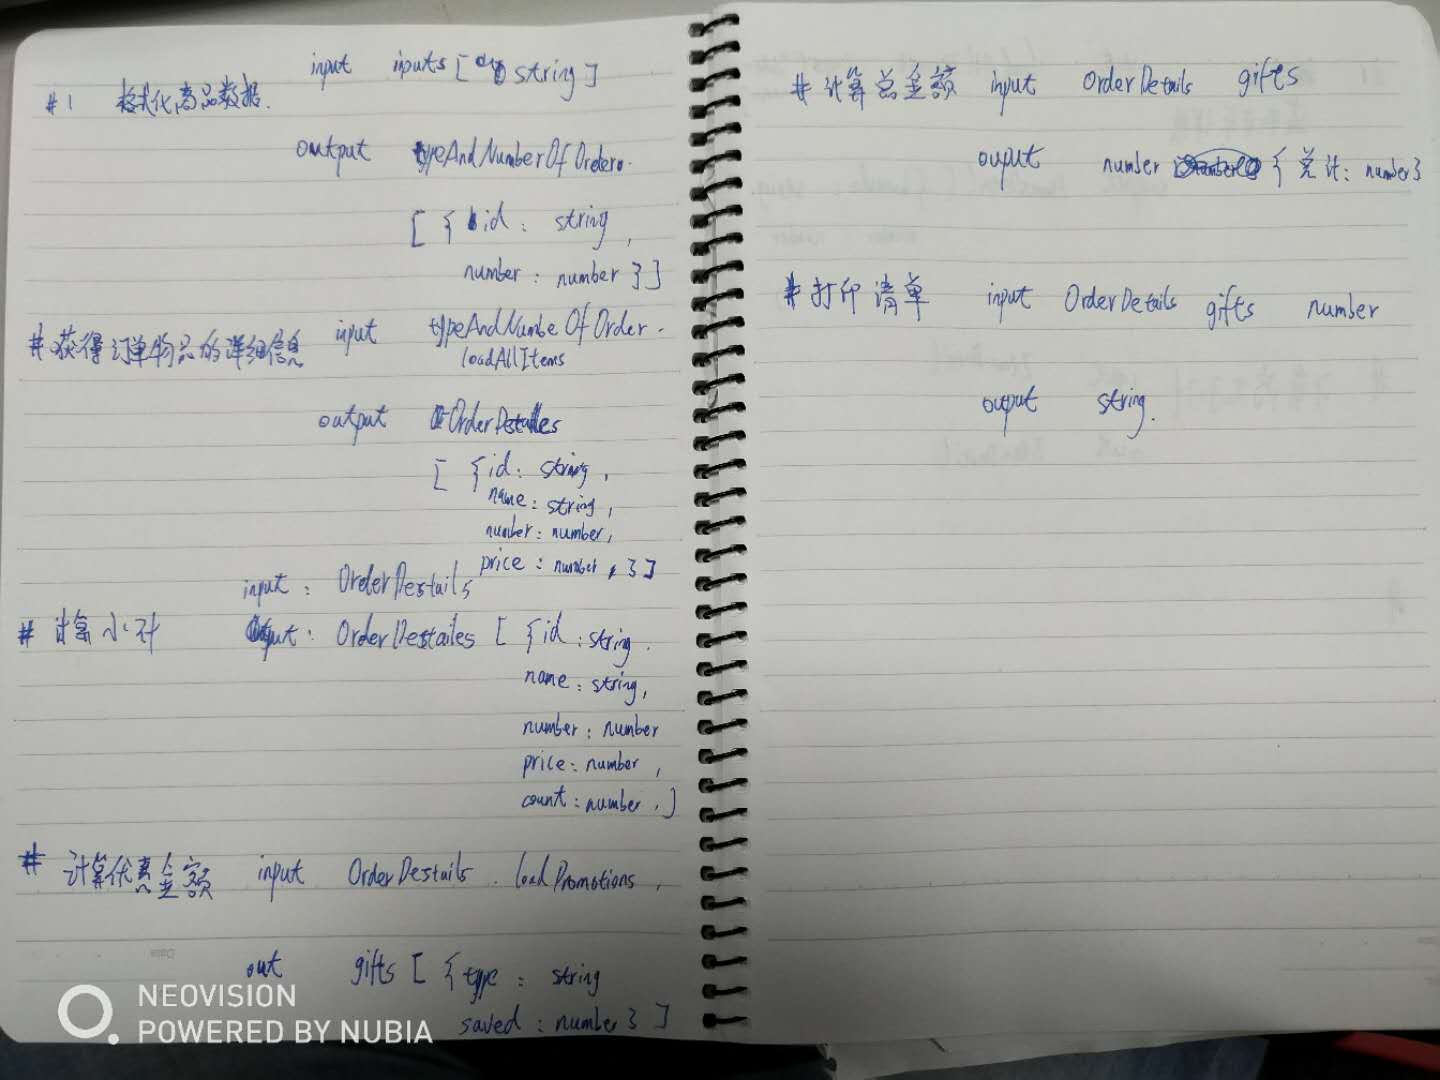 input inputs [ string ]
#1 格式化商品数据.
output typeAndNumberOfOrder.
[ { id : string ,
number : number } ]
#获得订单物品的详细信息 input typeAndNumbeOfOrder.
loadAllItems
output OrderDestailes
[ {id : string ,
name : string ,
number : number,
price : number , } ]
input : OrderDestails
# 计算小计 Output : OrderDestailes [ {id : string .
name : string,
number : number
price : number ,
count : number , ]
# 计算优惠金额 input OrderDestails . loadPromotions ,
out gifts [ { type : string
saved : number } ]
NEOVISION
POWERED BY NUBIA
# 计算总金额 input OrderDetails gifts
ouput number { 总计: number}
# 打印清单 input OrderDetails gifts number
output string.